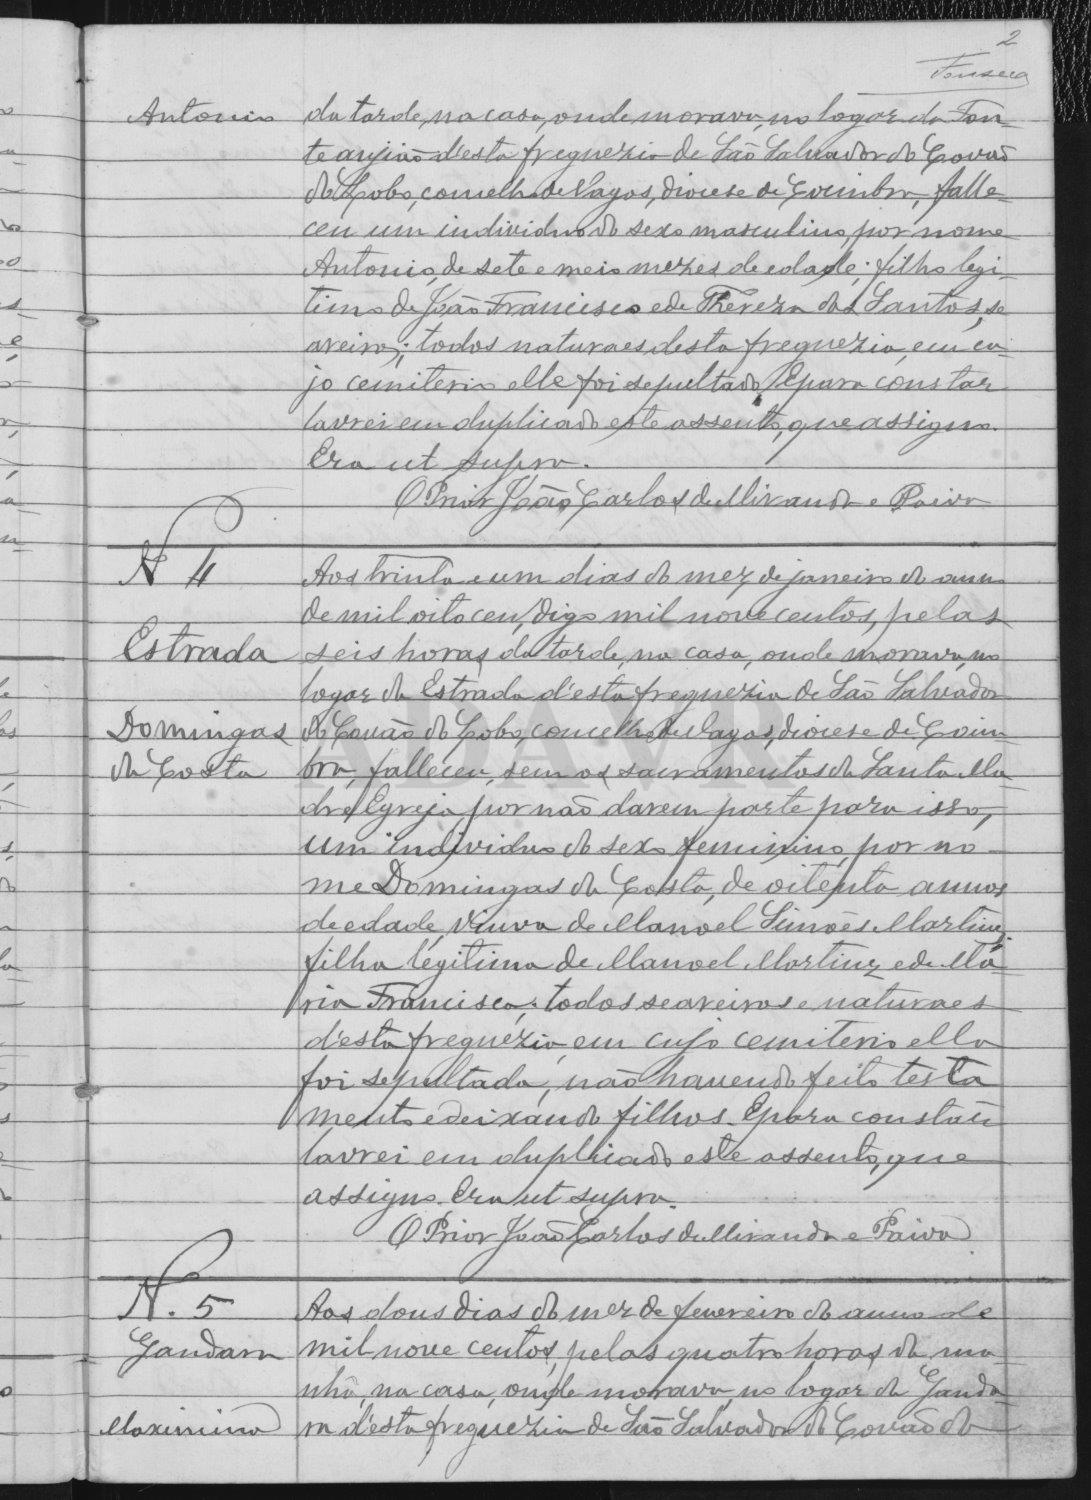 2
Fonseca
Antonio
da tarde, na casa, onde morava, no logar da Fon-
te anjião d'esta freguezia de São Salvador do Covão
do Lobo, concelho de Vagos, diocese de Coimbra, falle-
ceu um individuo do sexo masculino, por nome
Antonio, de sete e meio mezes de edade; filho legi-
timo de João Francisco e de Thereza dos Santos, se
areiros; todos naturaes desta freguezia, em cu-
jo cemiterio elle foi sepultado. E para constar
lavrei em duplicado este assento, que assigno.
Era ut supra.
O Prior João Carlos de Miranda e Paiva
N 4
Estrada
Domingas
da Costa
Aos trinta e um dias do mez de janeiro do anno
de mil oito cen, digo mil nove centos, pelas
seis horas da tarde, na casa, onde morava, no
logar da Estrada d'esta freguezia de São Salvador
do Covão do Lobo, concelho de Vagos, diocese de Coim-
bra, falleceu, sem os sacramentos da Santa Ma-
dre Egreja por não darem parte para isso,
um individuo do sexo feminino, por no-
me Domingas da Costa, de oitenta annos
de edade, viuva de Manoel Simões Martins;
filha legitima de Manoel Martins e de Ma-
ria Francisca; todos seareiros e naturaes
d'esta freguezia, em cujo cemiterio ella
foi sepultada, não havendo feito testa
mento e deixando filhos. E para constar
lavrei em duplicado este assento, que
assigno. Era ut supra.
O Prior João Carlos de Miranda e Paiva
N. 5
Gandara
Maximino
Aos dous dias do mez de fevereiro do anno de
mil nove centos, pelas quatro horas da ma-
nhã, na casa, onde morava, no logar da Ganda-
ra d'esta freguezia de São Salvador do Covão do
ADAVR